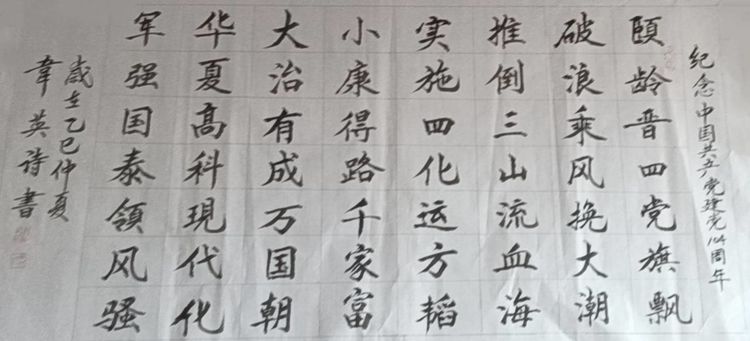 纪念中国共产党建党104周年
颐龄晋四党旗飘
破浪乘风换大潮
推倒三山流血海
实施四化运方韬
小康得路千家富
大治有成万国朝
华夏高科现代化
军强国泰领风骚
岁在乙巳仲夏
韋英诗書